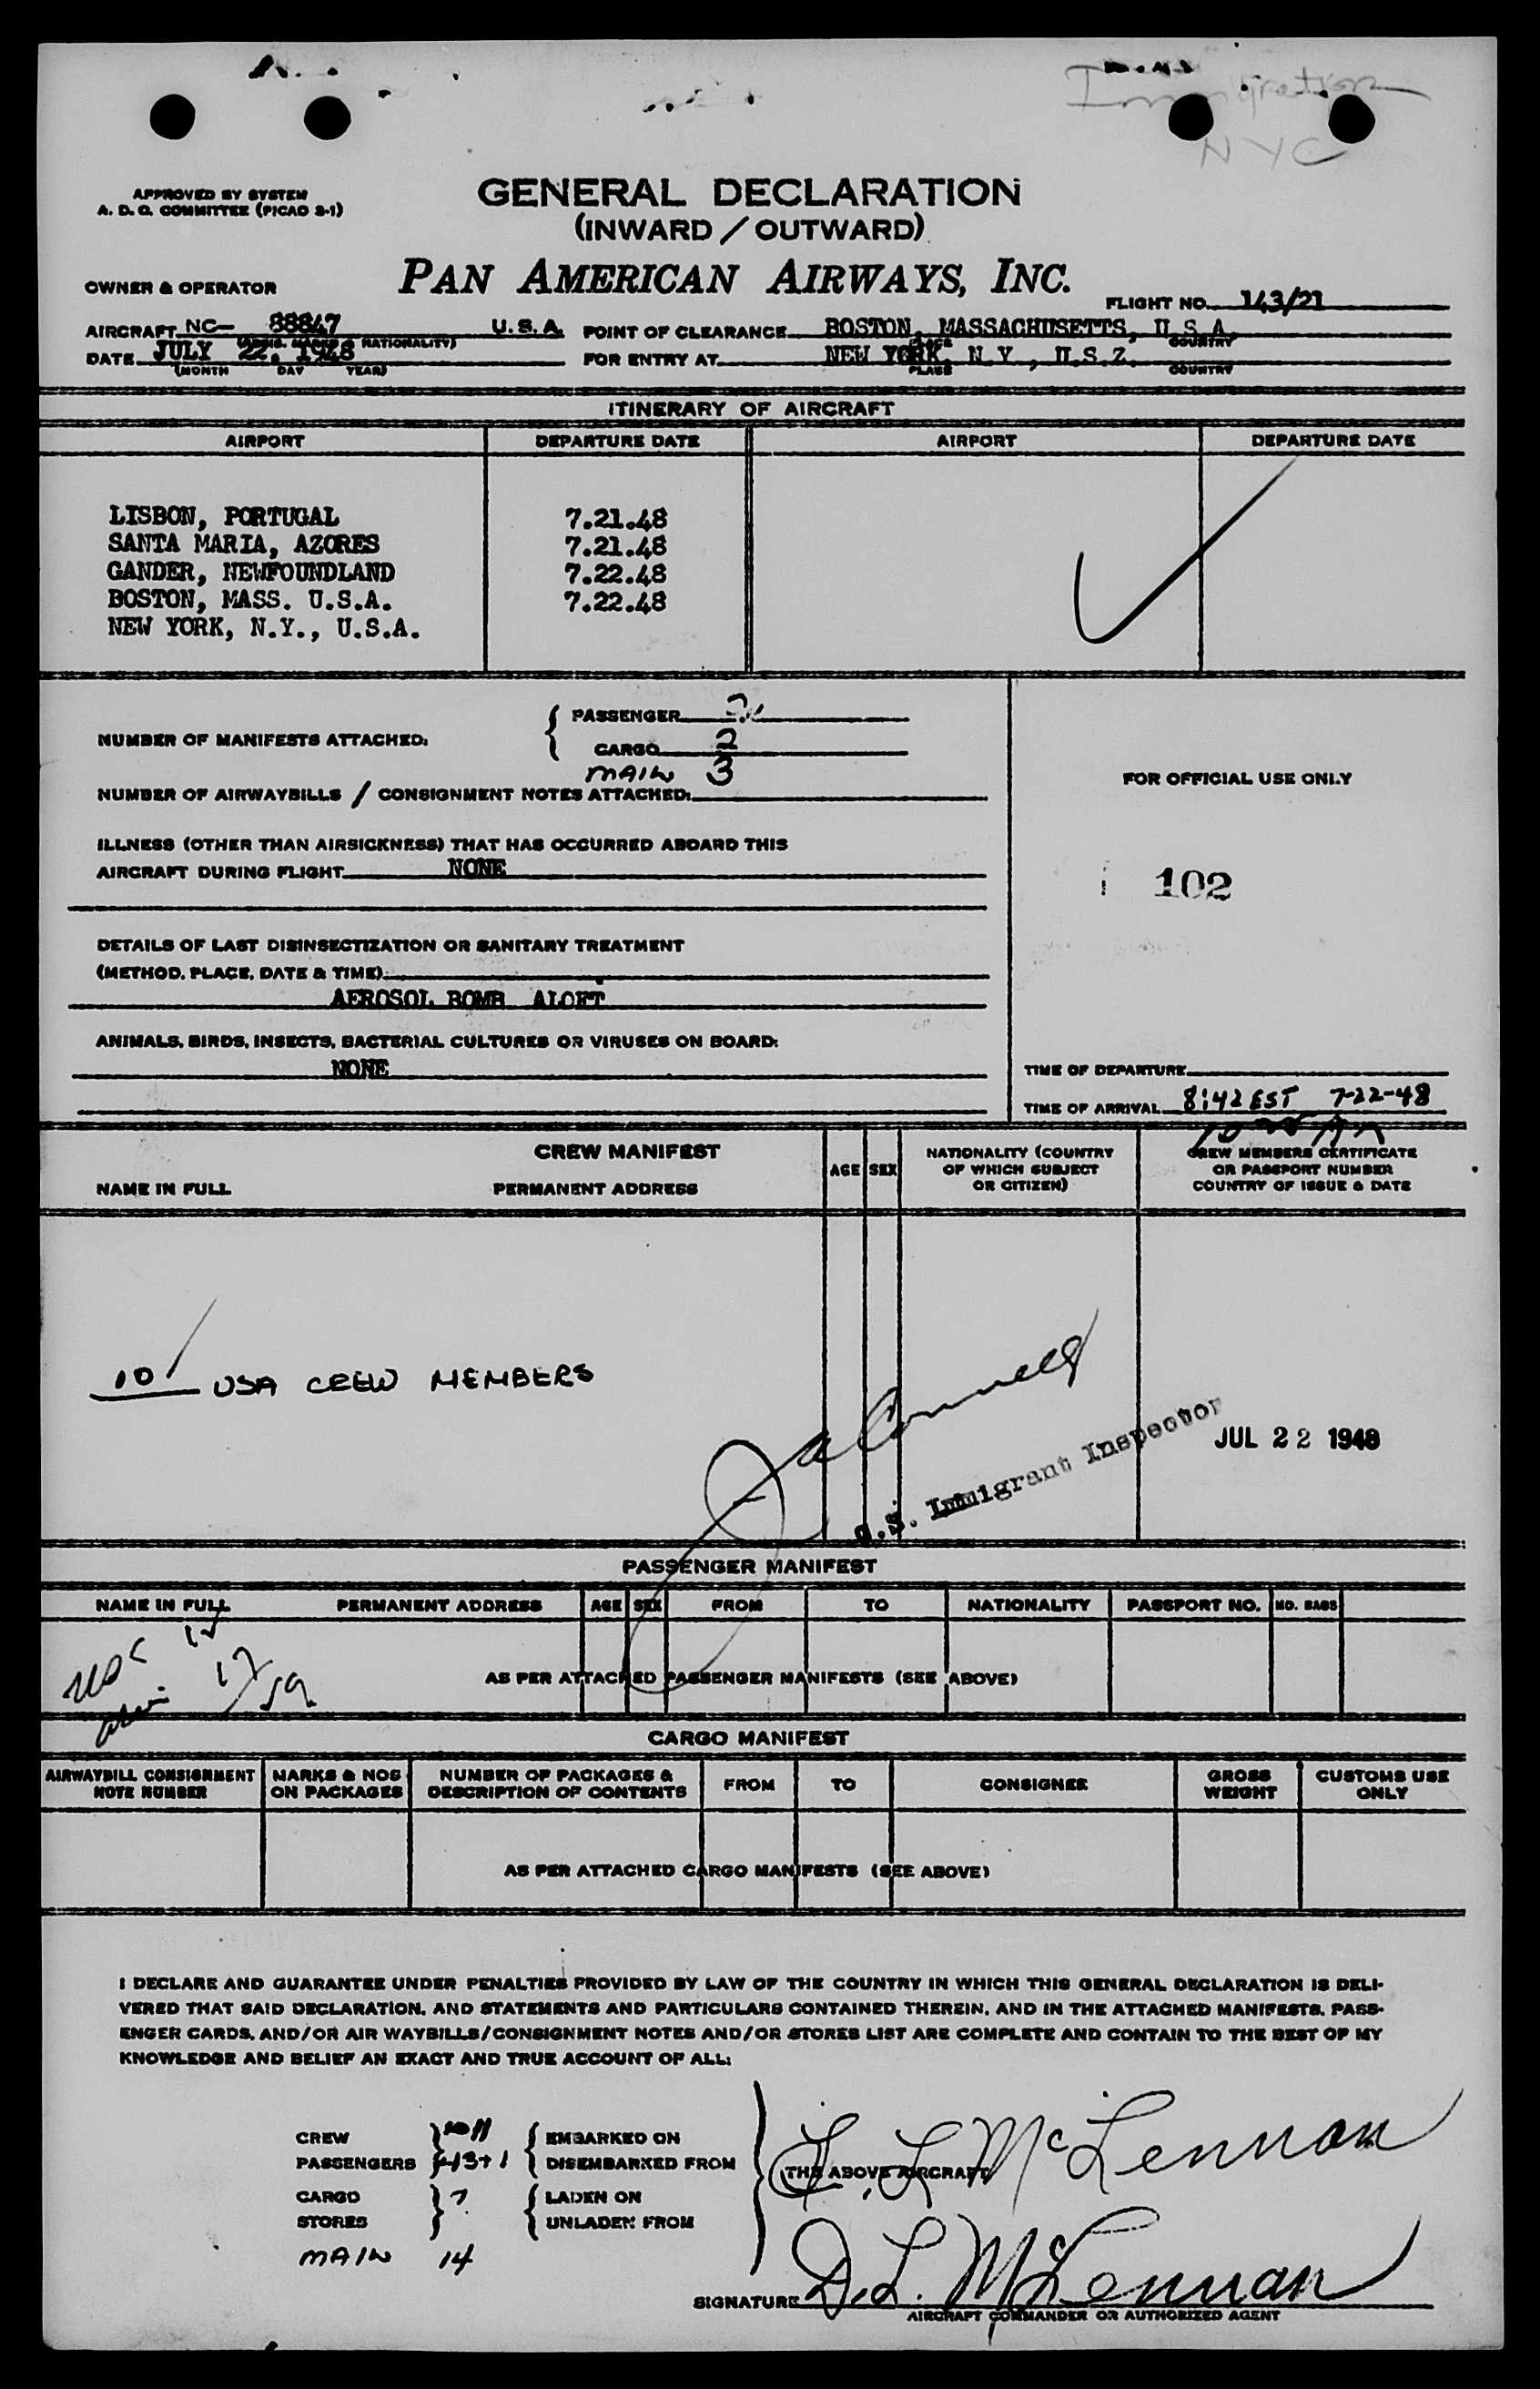 Immigration
NYC
APPROVED BY SYSTEM
A. D. O. COMMITTEE (PICAO S-1)
GENERAL DECLARATION
(INWARD / OUTWARD)
OWNER & OPERATOR
PAN AMERICAN AIRWAYS, INC.
FLIGHT NO. 143/21
AIRCRAFT NC- 88847 U.S.A. POINT OF CLEARANCE BOSTON, MASSACHUSETTS, U.S.A.
NATIONALITY) PLACE COUNTRY
DATE JULY 22, 1948 FOR ENTRY AT NEW YORK, N.Y., U.S.Z.
(MONTH DAY YEAR) PLACE COUNTRY
ITINERARY OF AIRCRAFT
AIRPORT DEPARTURE DATE AIRPORT DEPARTURE DATE
LISBON, PORTUGAL 7.21.48
SANTA MARIA, AZORES 7.21.48
GANDER, NEWFOUNDLAND 7.22.48
BOSTON, MASS. U.S.A. 7.22.48
NEW YORK, N.Y., U.S.A.
PASSENGER
NUMBER OF MANIFESTS ATTACHED:
CARGO 2
MAIN 3
NUMBER OF AIRWAYBILLS / CONSIGNMENT NOTES ATTACHED:
FOR OFFICIAL USE ONLY
ILLNESS (OTHER THAN AIRSICKNESS) THAT HAS OCCURRED ABOARD THIS
AIRCRAFT DURING FLIGHT NONE
102
DETAILS OF LAST DISINSECTIZATION OR SANITARY TREATMENT
(METHOD, PLACE, DATE & TIME)
AEROSOL BOMB ALOFT
ANIMALS, BIRDS, INSECTS, BACTERIAL CULTURES OR VIRUSES ON BOARD:
NONE
TIME OF DEPARTURE
TIME OF ARRIVAL 8:42 EST 7-22-48
CREW MANIFEST
NAME IN FULL PERMANENT ADDRESS
AGE SEX
NATIONALITY (COUNTRY
OF WHICH SUBJECT
OR CITIZEN)
CREW MEMBERS CERTIFICATE
OR PASSPORT NUMBER
COUNTRY OF ISSUE & DATE
10 USA CREW MEMBERS
U.S. Immigrant Inspector
JUL 22 1948
PASSENGER MANIFEST
NAME IN FULL PERMANENT ADDRESS AGE SEX FROM TO NATIONALITY PASSPORT NO. NO. BAGS
AS PER ATTACHED PASSENGER MANIFESTS (SEE ABOVE)
CARGO MANIFEST
AIRWAYBILL CONSIGNMENT
NOTE NUMBER
MARKS & NOS
ON PACKAGES
NUMBER OF PACKAGES &
DESCRIPTION OF CONTENTS
FROM TO CONSIGNEE
GROSS
WEIGHT
CUSTOMS USE
ONLY
AS PER ATTACHED CARGO MANIFESTS (SEE ABOVE)
I DECLARE AND GUARANTEE UNDER PENALTIES PROVIDED BY LAW OF THE COUNTRY IN WHICH THIS GENERAL DECLARATION IS DELI-
VERED THAT SAID DECLARATION, AND STATEMENTS AND PARTICULARS CONTAINED THEREIN, AND IN THE ATTACHED MANIFESTS, PASS-
ENGER CARDS, AND/OR AIR WAYBILLS/CONSIGNMENT NOTES AND/OR STORES LIST ARE COMPLETE AND CONTAIN TO THE BEST OF MY
KNOWLEDGE AND BELIEF AN EXACT AND TRUE ACCOUNT OF ALL:
CREW 11 EMBARKED ON
PASSENGERS 43+1 DISEMBARKED FROM
THE ABOVE AIRCRAFT
L McLennan
CARGO 7 LADEN ON
STORES UNLADEN FROM
MAIN 14
SIGNATURE D.L. McLennan
AIRCRAFT COMMANDER OR AUTHORIZED AGENT